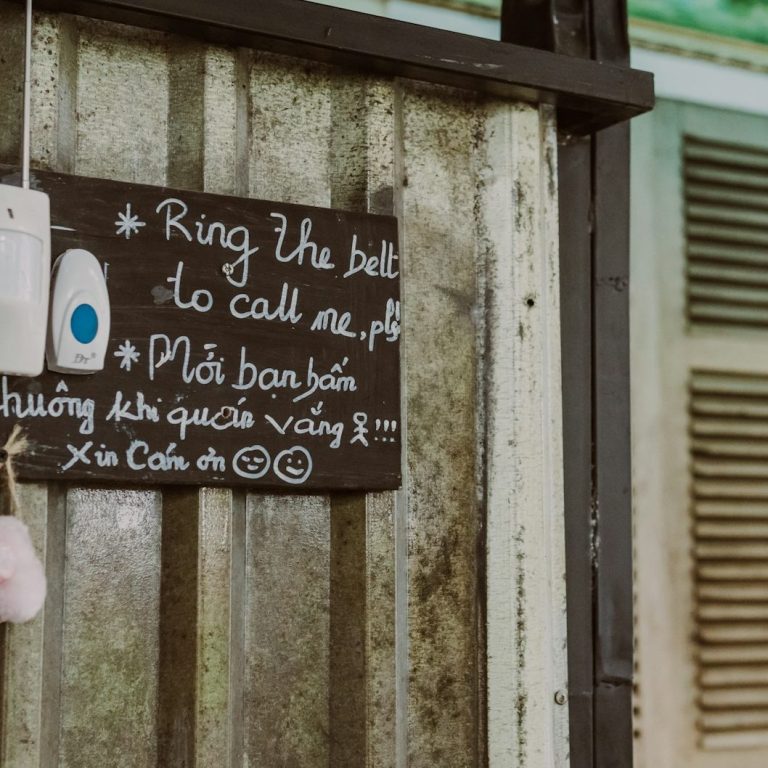 * Ring the belt
to call me, pls!
* Mời bạn bấm
chuông khi quán vắng 웃!!!
Xin Cảm ơn ☺☺